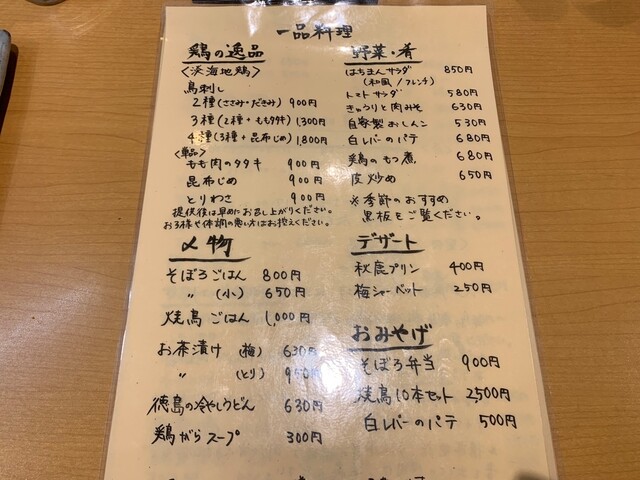 一品料理
鶏の逸品
<浜海地鶏>
鳥刺し
2種(ささみ・だきみ) 900円
3種(2種+ももタタキ) 1,300円
4種(3種+昆布じめ) 1,800円
<単品>
もも肉のタタキ 900円
昆布じめ 900円
とりわさ 900円
提供後は早めにお召し上がりください。
お子様や体調の悪い方はお控えください。
〆物
そぼろごはん 800円
〃 (小) 650円
焼鳥ごはん 1,000円
お茶漬け (梅) 630円
〃 (とり) 950円
徳島の冷やしうどん 630円
鶏がらスープ 300円
野菜・肴
はちまんサラダ 850円
(和風/フレンチ)
トマトサラダ 580円
きゅうりと肉みそ 630円
自家製おしんこ 530円
白レバーのパテ 680円
鶏のもつ煮 680円
皮炒め 650円
※季節のおすすめ
黒板をご覧ください。
デザート
秋鹿プリン 400円
梅シャーベット 250円
おみやげ
そぼろ弁当 900円
焼鳥10本セット 2,500円
白レバーのパテ 500円